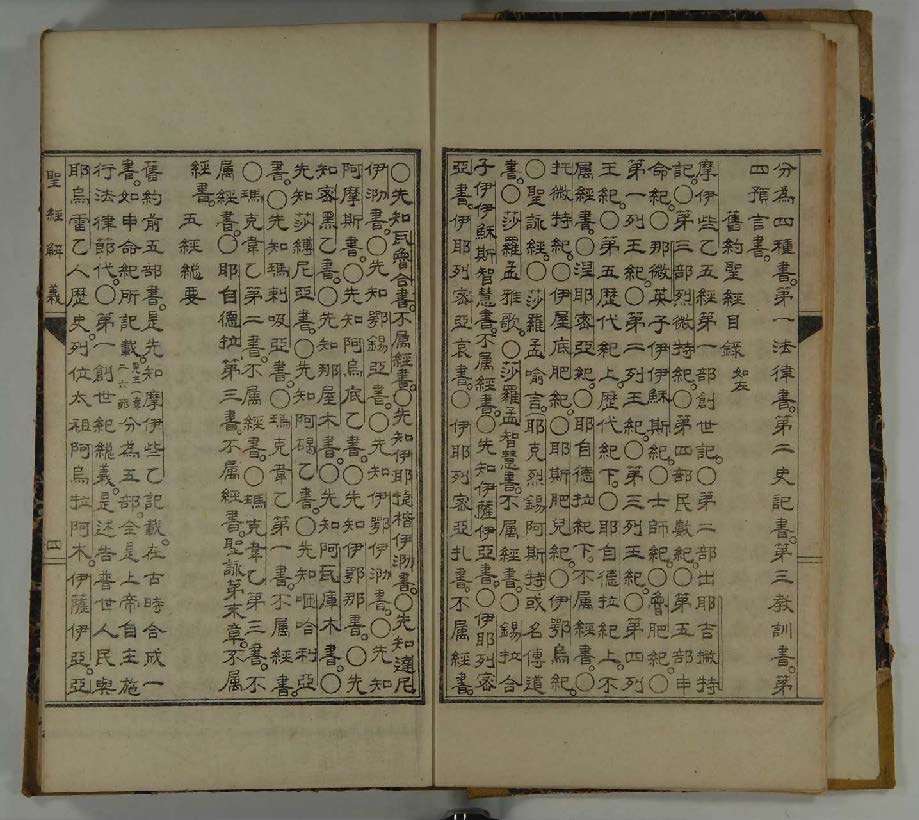 分為四種書。第一法律書。第二史記書。第三教訓書。第
四預言書。
舊約聖經目錄 如左
摩伊些乙五經第一部創世記。〇第二部出耶吉撒特
記。〇第三部烈微特紀。〇第四部民數紀。〇第五部申
命紀。〇那微英子伊穌斯紀。〇士師紀。〇魯肥紀。〇
第一列王紀。〇第二列王紀。〇第三列王紀。〇第四列
王紀。〇第五歷代紀上。歷代紀下。〇耶自德拉紀上。不
属經書。〇涅耶密亞紀。〇耶自德拉紀下。不属經書。〇
托微特紀。〇伊屋底肥紀。〇耶斯肥兒紀。〇伊鄂烏紀。
〇聖詠經。〇莎羅孟喻言。耶克烈錫阿斯特或名傳道
書。〇莎羅孟雅歌。〇莎羅孟智慧書。不属經書。〇錫拉合
子伊伊穌斯智慧書。不属經書。〇先知伊薩伊亞書。〇伊耶列密
亞書。伊耶列密亞哀書。〇伊耶列密亞札書。不属經書。
〇先知瓦魯合書。不属經書。〇先知伊耶捷楷伊泐書。〇先知達尼
伊泐書。〇先知鄂錫亞書。〇先知伊鄂伊泐書。〇先知
阿摩斯書。〇先知阿烏底乙書。〇先知伊鄂那書。〇先
知密黑乙書。〇先知那屋木書。〇先知阿瓦庫木書。〇
先知莎縛尼亞書。〇先知阿碣乙書。〇先知咂哈利亞
書。〇先知瑪剌吸亞書。〇瑪克韋乙第一書。不属經書。
〇瑪克韋乙第二書。不属經書。〇瑪克韋乙第三書。不
属經書。〇耶自德拉第三書不属經書。聖詠第末章。不属
經書。五經總要
舊約前五部書。是先知摩伊些乙記載。在古時合成一
書。如申命紀所記載。分為五部全是上帝自主施
行法律節代。〇第一創世紀總義。是述告普世人民與
耶烏雷乙人歷史。列位太祖阿烏拉阿木。伊薩伊亞。亞
聖經解義
四